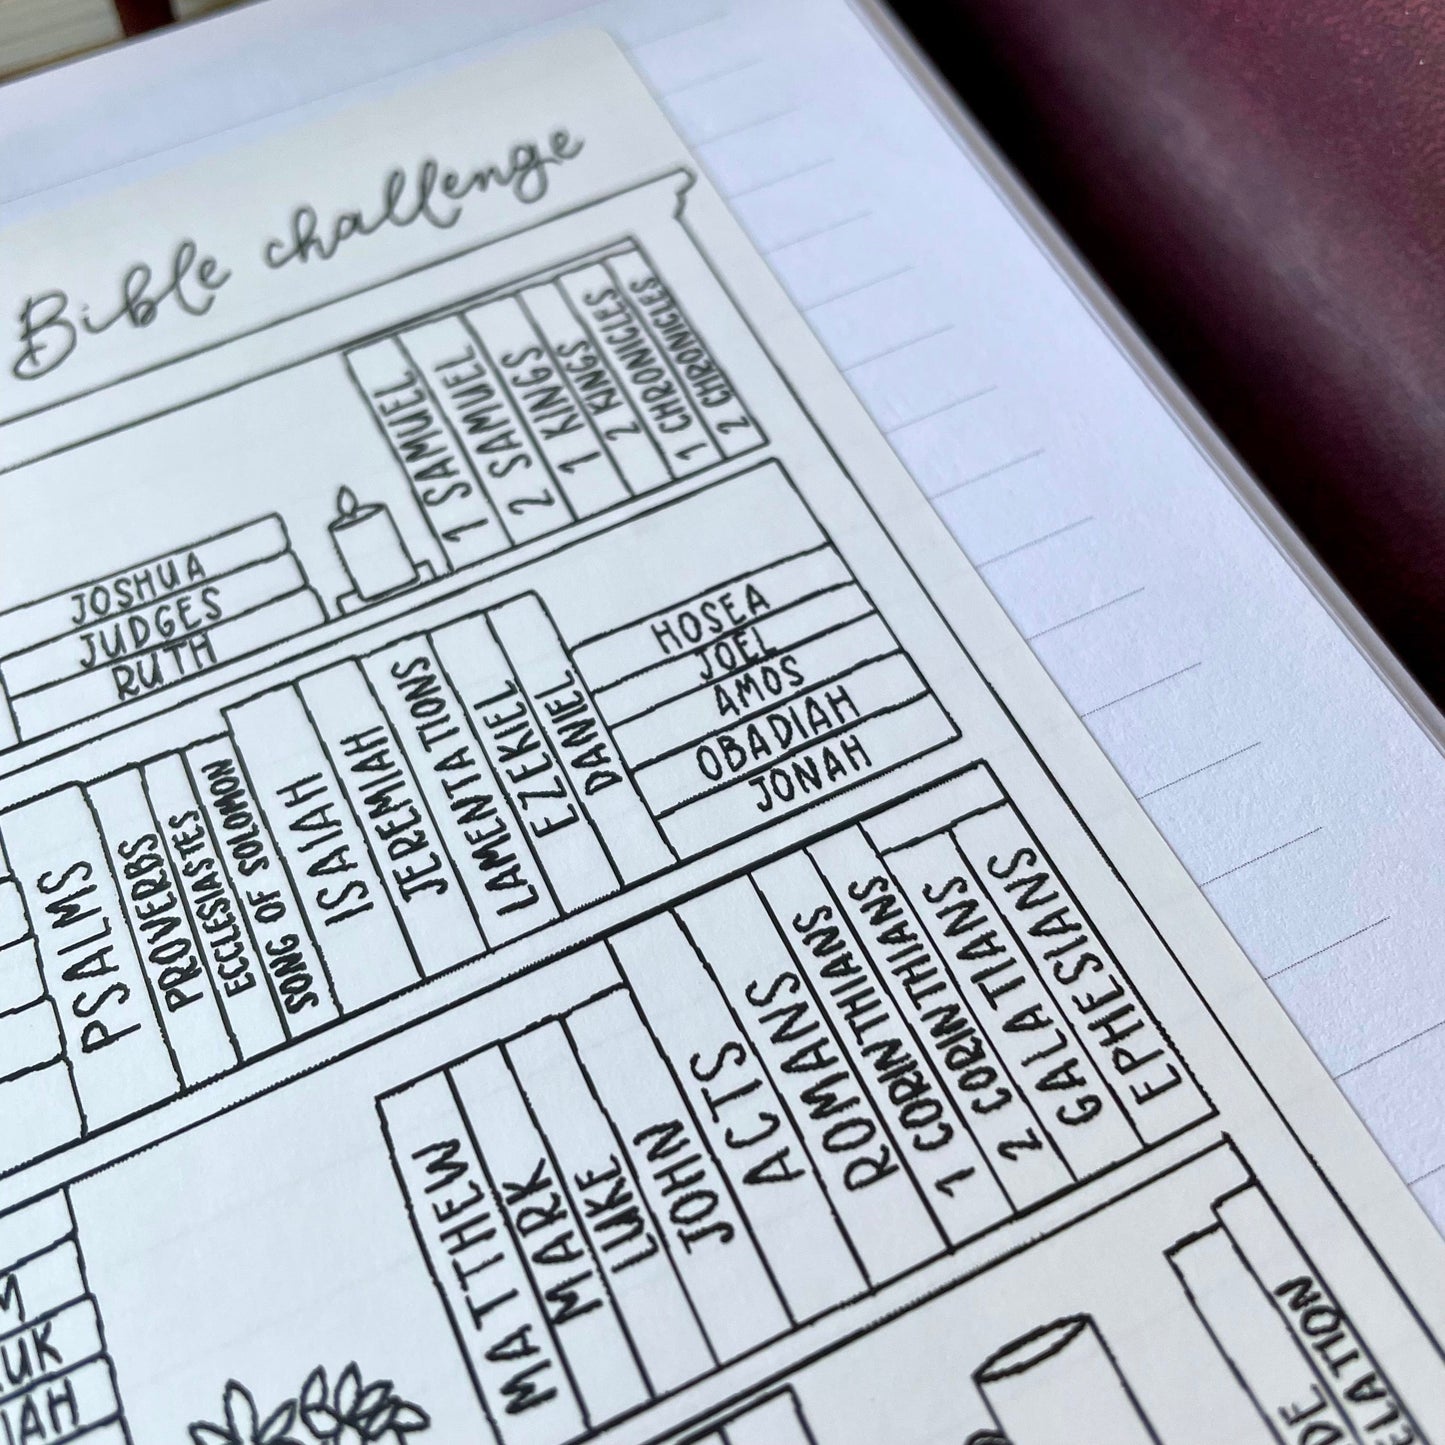 Bible challenge
JOSHUA
JUDGES
RUTH
1 SAMUEL
2 SAMUEL
1 KINGS
2 KINGS
1 CHRONICLES
2 CHRONICLES
PSALMS
PROVERBS
ECCLESIASTES
SONG OF SOLOMON
ISAIAH
JEREMIAH
LAMENTATIONS
EZEKIEL
DANIEL
HOSEA
JOEL
AMOS
OBADIAH
JONAH
MATTHEW
MARK
LUKE
JOHN
ACTS
ROMANS
1 CORINTHIANS
2 CORINTHIANS
GALATIANS
EPHESIANS